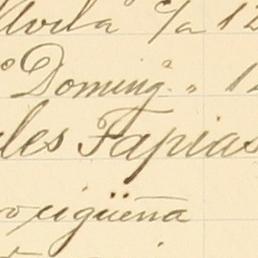 Avila c/a 12
Domingº " 1
les Tapias
igüena